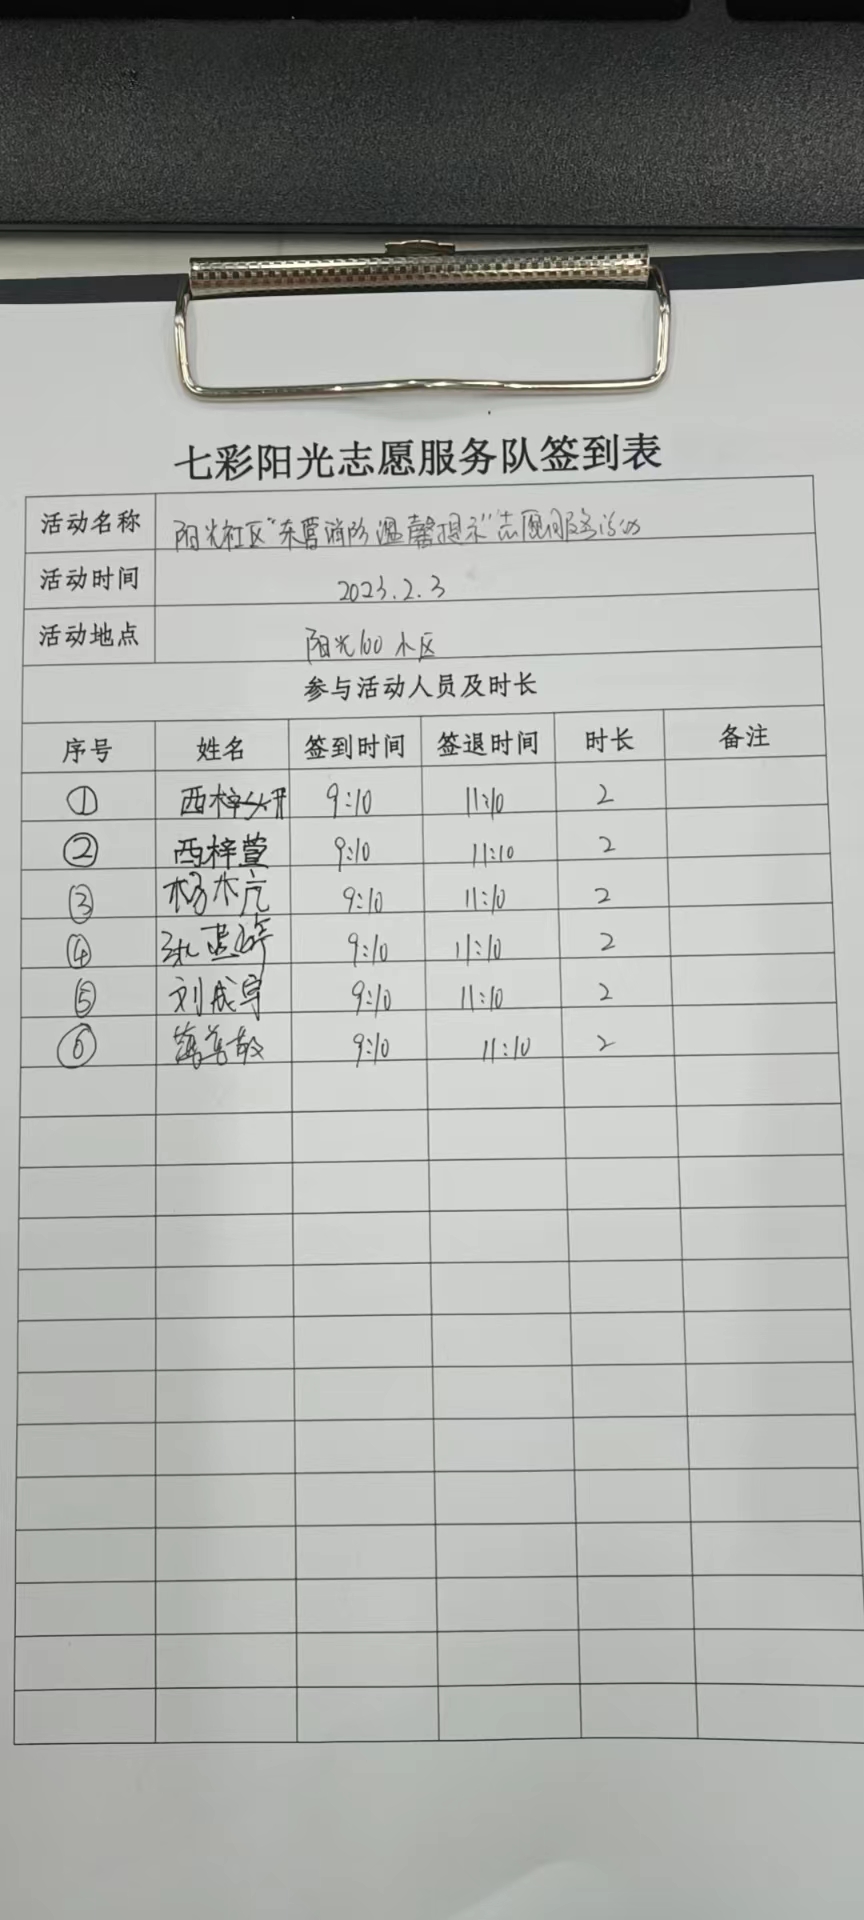 七彩阳光志愿服务队签到表
活动名称 阳光社区"东营消防温馨提示"志愿服务活动
活动时间 2023.2.3
活动地点 阳光100小区
参与活动人员及时长
序号 姓名 签到时间 签退时间 时长 备注
① 西梓妍 9:10 11:10 2
② 西梓萱 9:10 11:10 2
③ 杨木亢 9:10 11:10 2
④ 9:10 11:10 2
⑤ 刘成宇 9:10 11:10 2
⑥ 9:10 11:10 2